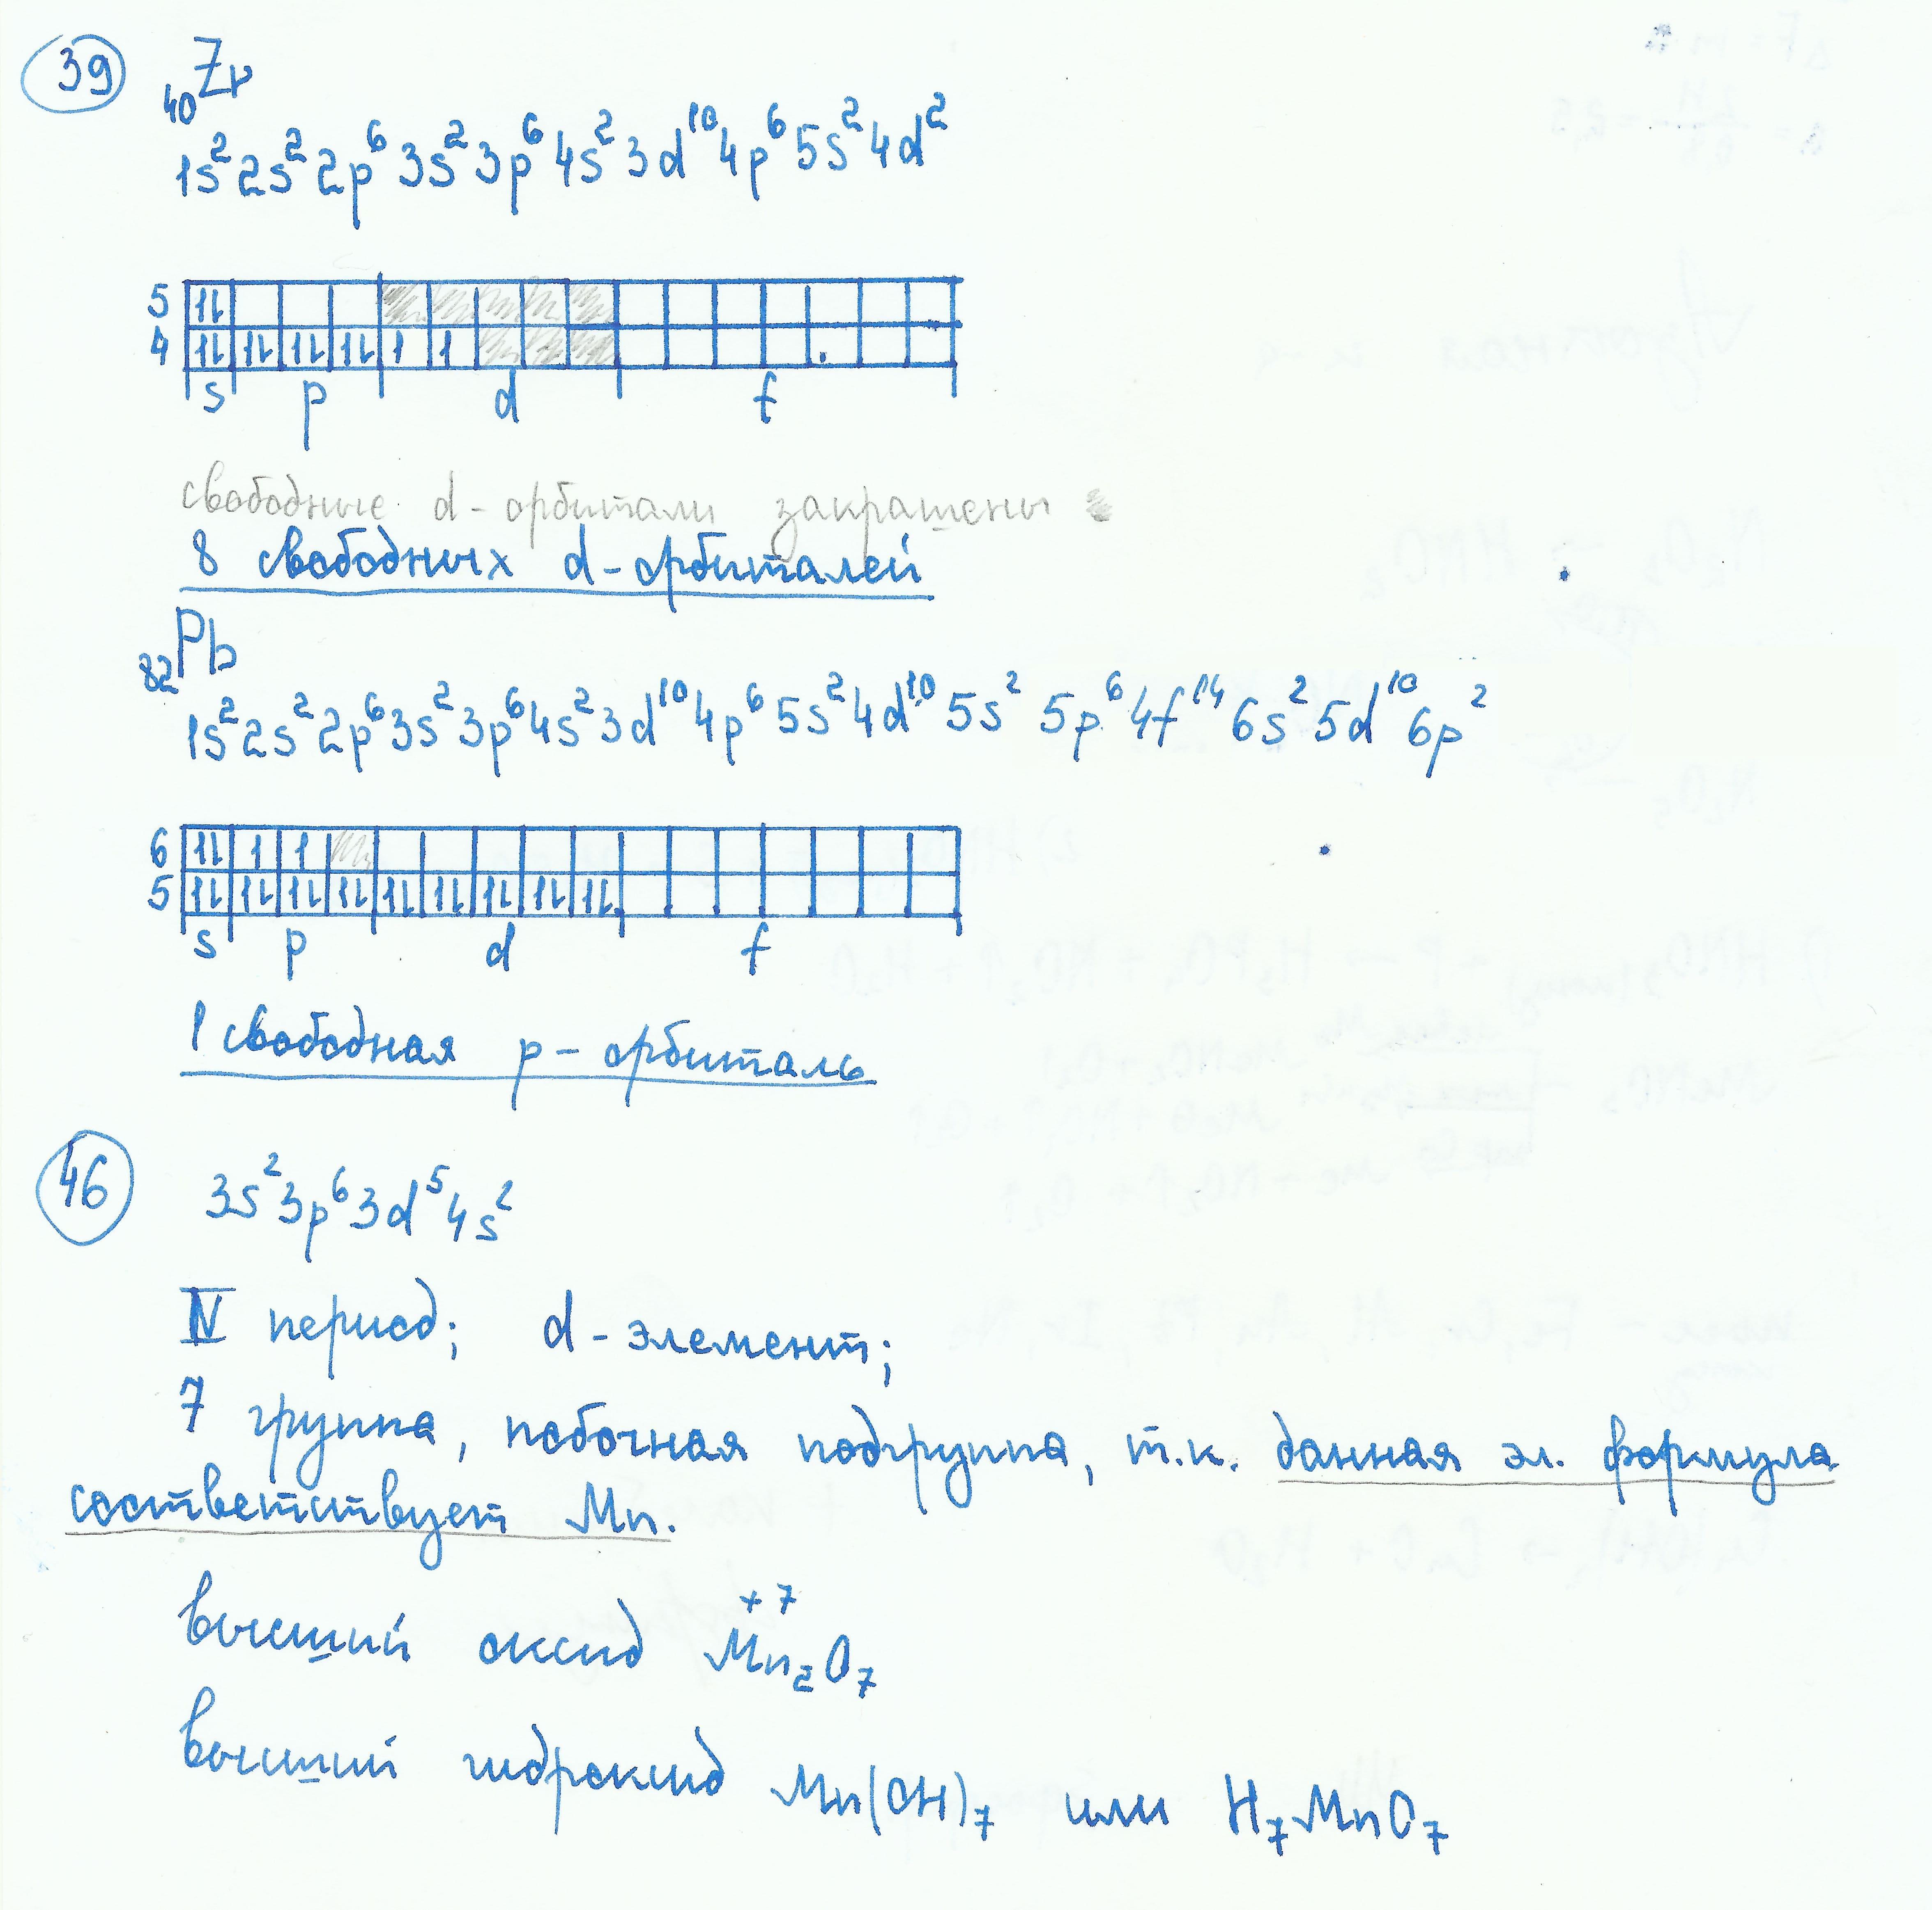 39
₄₀Zr
1s²2s²2p⁶3s²3p⁶4s²3d¹⁰4p⁶5s²4d²
5 1l
4 1l 1l 1l 1l 1 1
s p d f
свободные d-орбитали закрашены
8 свободных d-орбиталей
₈₂Pb
1s²2s²2p⁶3s²3p⁶4s²3d¹⁰4p⁶5s²4d¹⁰5s²5p⁶4f¹⁴6s²5d¹⁰6p²
6 1l 1 1
5 1l 1l 1l 1l 1l 1l 1l 1l 1l
s p d f
1 свободная p-орбиталь
46
3s²3p⁶3d⁵4s²
IV период; d-элемент;
7 группа, побочная подгруппа, т.к. данная эл. формула
соответствует Mn.
+7
высший оксид Mn₂O₇
высший гидроксид Mn(OH)₇ или H₇MnO₇